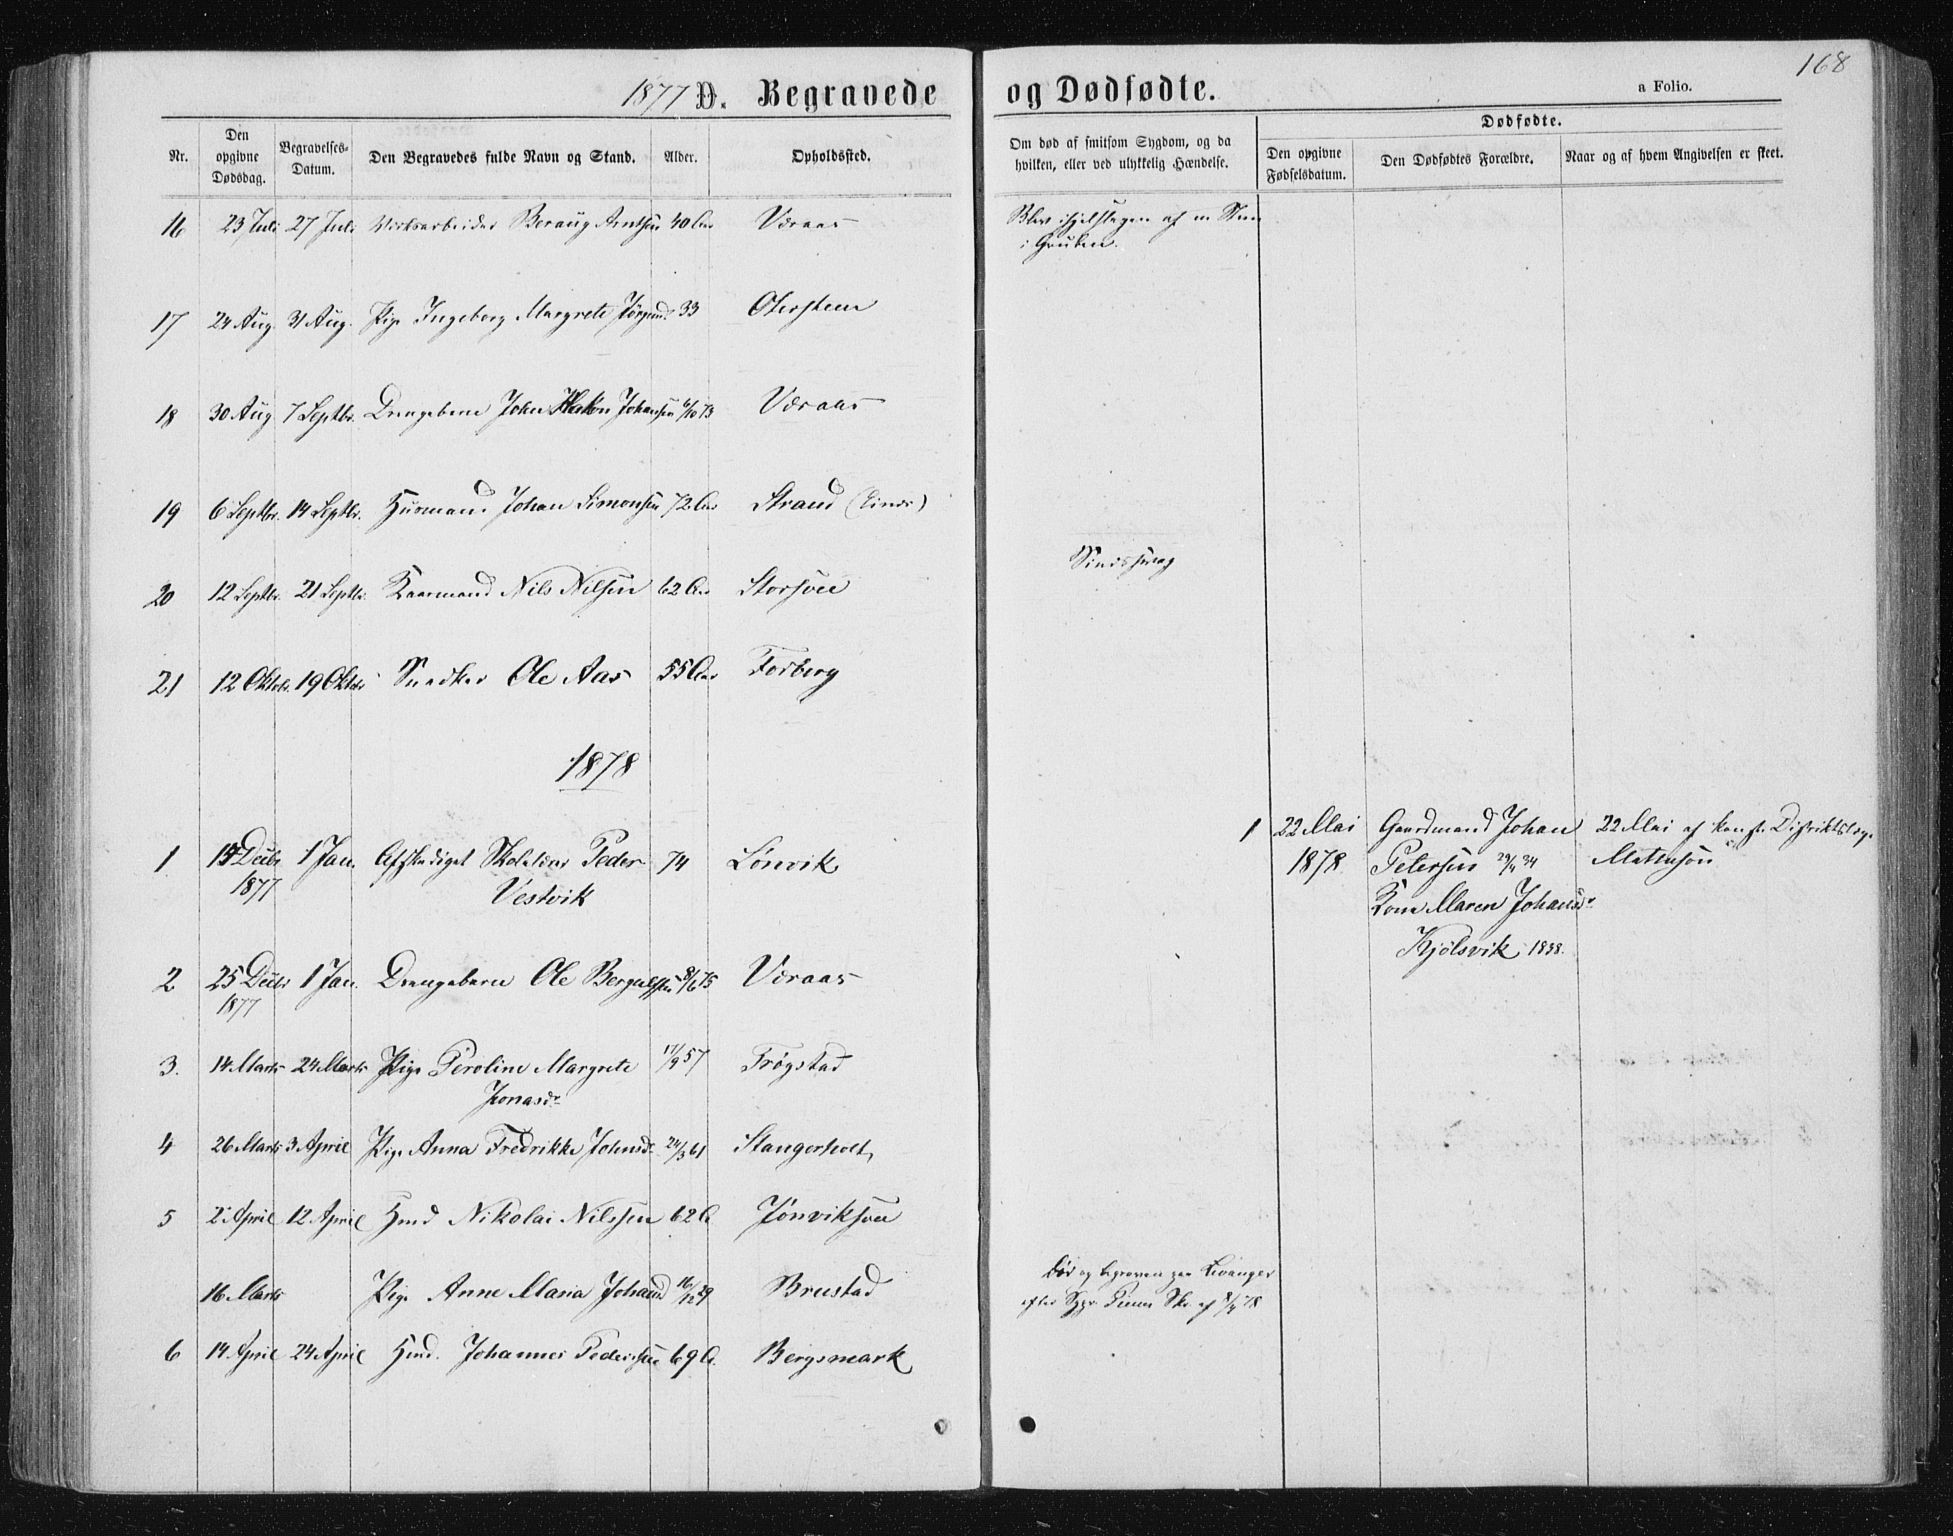 1877 D. Begravede og Dødfødte.
a Folio.
168
Nr.
Den opgivne Dødsdag.
Begravelses-Datum.
Den Begravedes fulde Navn og Stand.
Alder.
Opholdssted.
Om død af smitsom Sygdom, og da
hvilken, eller ved ulykkelig Hændelse.
Dødfødte.
Den opgivne Fødselsdatum.
Den Dødfødtes Forældre.
Naar og af hvem Angivelsen er skeet.
16 23 Juli 27 Juli Verksarbeider Beraug Arntsen 40 Aar Væraas Blev ihjelslagen af en Sten
i Gruben.
17 24 Aug. 31 Aug. Pige Ingeborg Margrete 33
18 30 Aug 7 Septbr. Drengebarn John Johansen 6/10 73 Væraas
19 6 Septbr. 14 Septbr. Husmand Johan Simonsen 72 Aar Strand
20 12 Septbr. 21 Septbr. Kaarmand Nils Nilsen 62 Aar Sindssvag
21 12 Oktbr. 19 Oktbr Snedker Ole Aas 55 Aar Forberg
1878
1 Decbr 1877 1 Jan. Afskediget Skolelærer Peder 74 Lønvik
Vestvik
1 22 Mai Gaardmand Johan 22 Mai af Distriktslæge
1878. Petersen 34
Kone Maren Johansd.
Kjølsvik 1838.
2 25 Decbr 1 Jan. Drengebarn Ole 8/6 75 Væraas
1877
3. 14 Marts 24 Marts Pige Peroline Margrete 17/9 57 Trøgstad
Jonasd.
4 26 Marts 3 April Pige Anna Fredrikke Johnsd. 24/3 61 Stangerholt
5 2 April 12 April Hmd Nikolai Nilssen 62 A
16 Marts Pige Anne Maria Johansd 16/12 29 Brustad Død og begraven paa Levanger
efter 78
6 14 April 24 April Hmd. Johannes Pederssen 69 A. Bergsmark